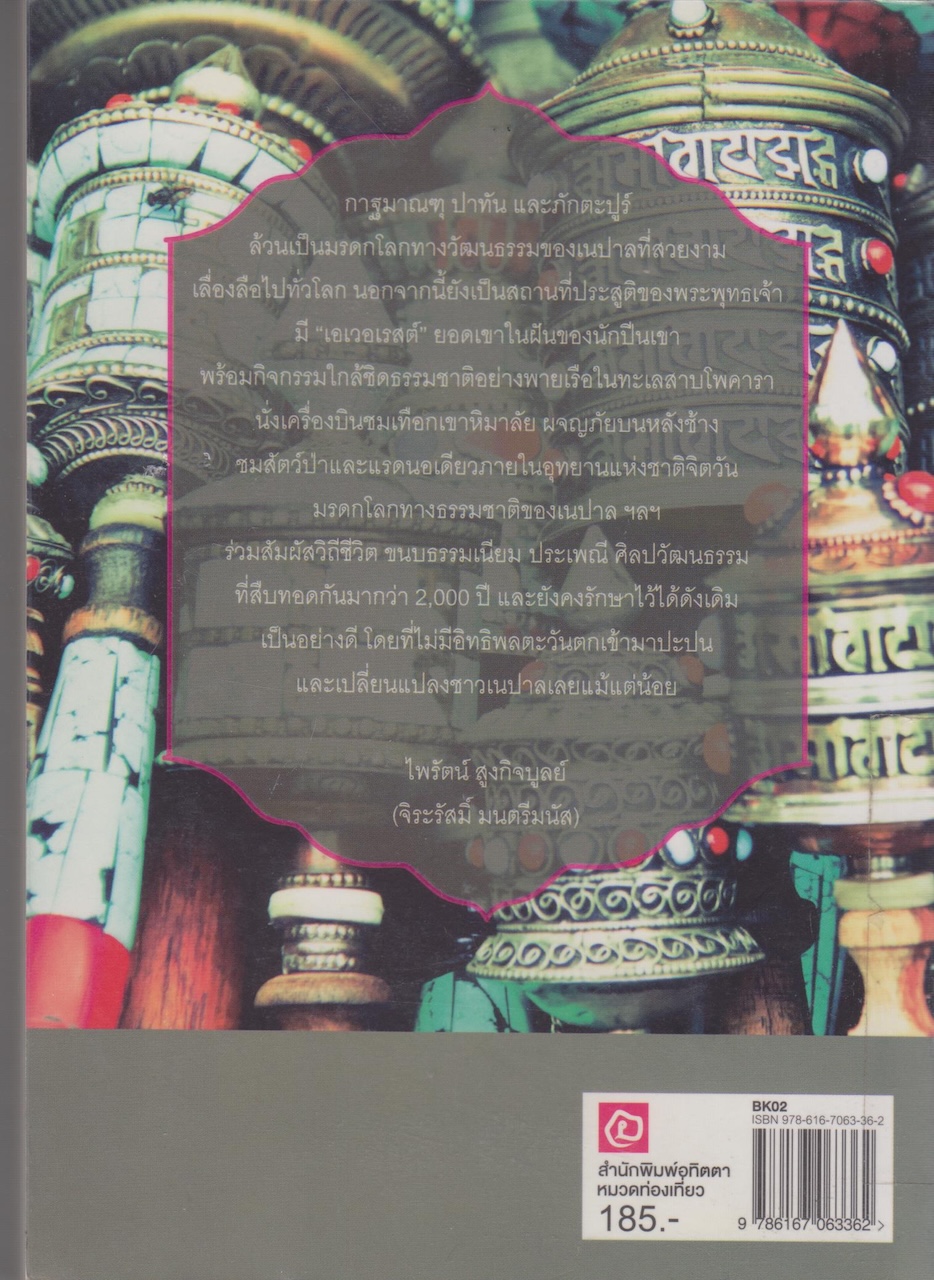 กาฐมาณฑุ ปาทัน และภักตะปูร์
ล้วนเป็นมรดกโลกทางวัฒนธรรมของเนปาลที่สวยงาม
เลื่องลือไปทั่วโลก นอกจากนี้ยังเป็นสถานที่ประสูติของพระพุทธเจ้า
มี “เอเวอเรสต์” ยอดเขาในฝันของนักปีนเขา
พร้อมกิจกรรมใกล้ชิดธรรมชาติอย่างพายเรือในทะเลสาบโพคารา
นั่งเครื่องบินชมเทือกเขาหิมาลัย ผจญภัยบนหลังช้าง
ชมสัตว์ป่าและแรดนอเดียวภายในอุทยานแห่งชาติจิตวัน
มรดกโลกทางธรรมชาติของเนปาล ฯลฯ
ร่วมสัมผัสวิถีชีวิต ขนบธรรมเนียม ประเพณี ศิลปวัฒนธรรม
ที่สืบทอดกันมากว่า 2,000 ปี และยังคงรักษาไว้ได้ดังเดิม
เป็นอย่างดี โดยที่ไม่มีอิทธิพลตะวันตกเข้ามาปะปน
และเปลี่ยนแปลงชาวเนปาลเลยแม้แต่น้อย
ไพรัตน์ สูงกิจบูลย์
(จิระรัสมิ์ มนตรีมนัส)
BK02
ISBN 978-616-7063-36-2
สำนักพิมพ์อทิตตา
หมวดท่องเที่ยว
185.-
9 786167 063362 >